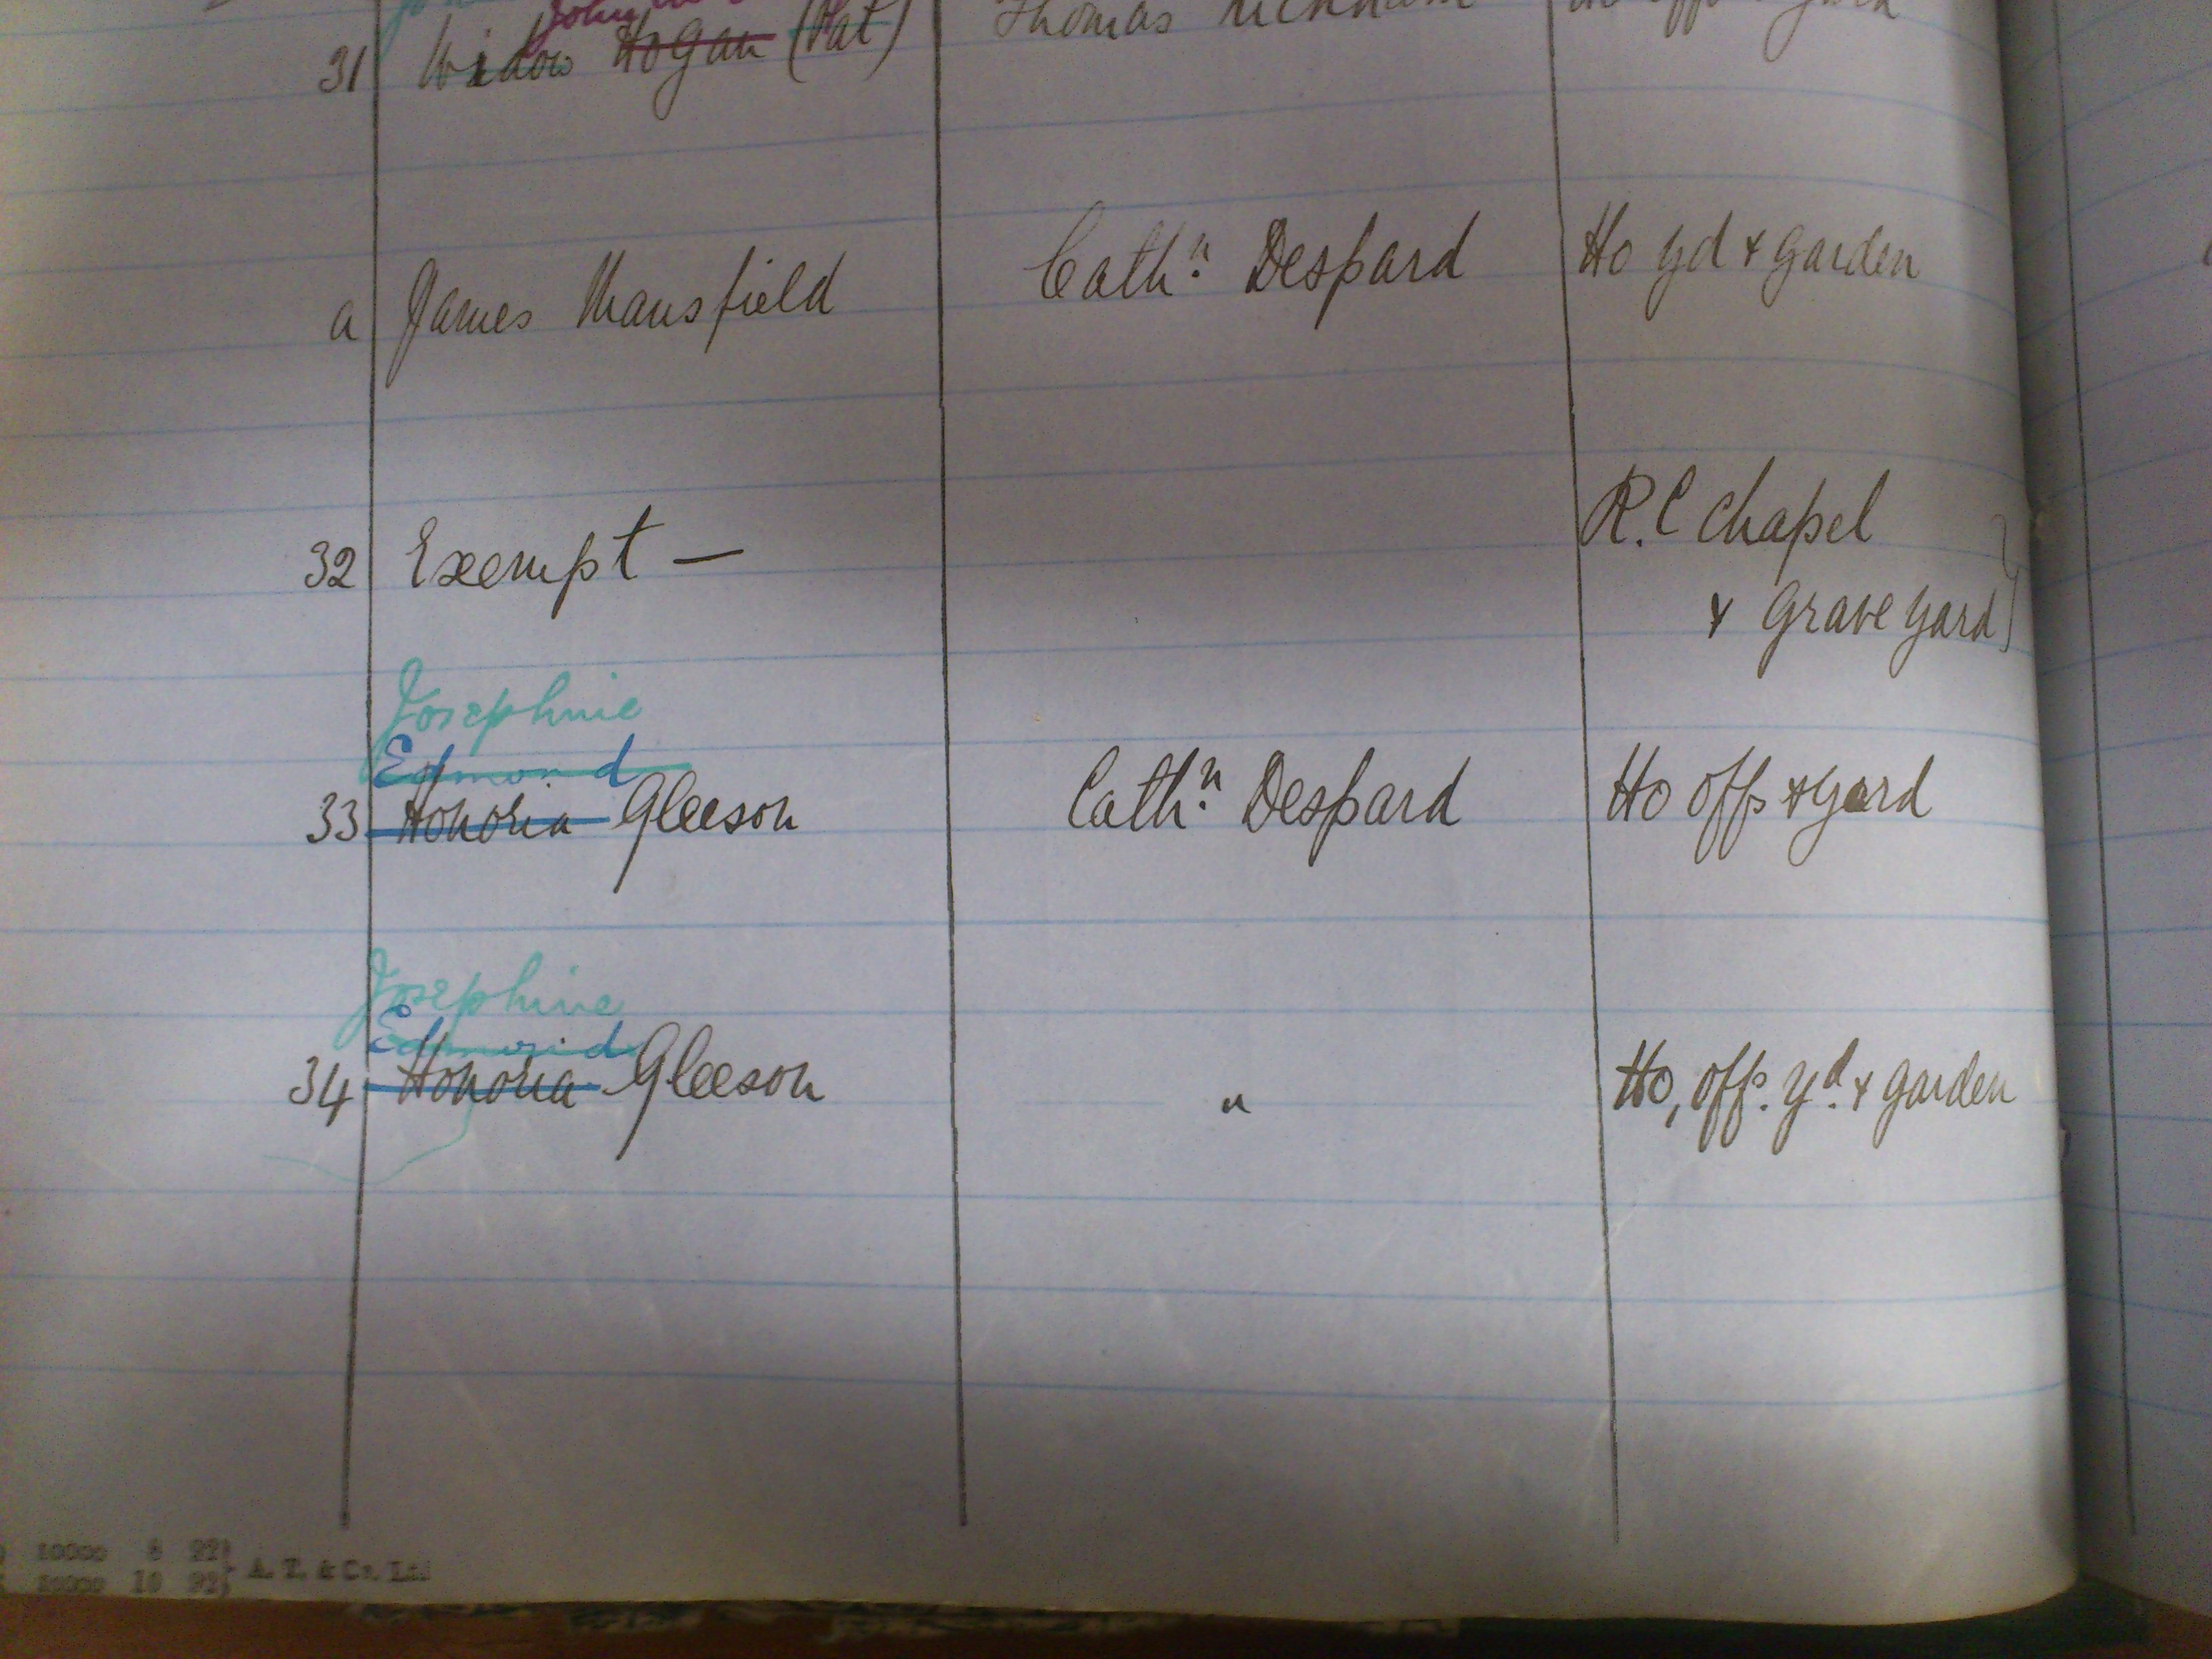 John
31 Widow Hogan (Pat) Thomas
a James Mansfield Cathn. Despard Ho yd & garden
32 Exempt — R.C Chapel
& Grave yard
Josephine
Edmond
33 Honoria Gleeson Cathn. Despard Ho offs & yard
Josephine
Edmond
34 Honoria Gleeson " Ho, offs. yd. & garden
10000 8 92
10000 10 92
A. T. & Co. Ltd